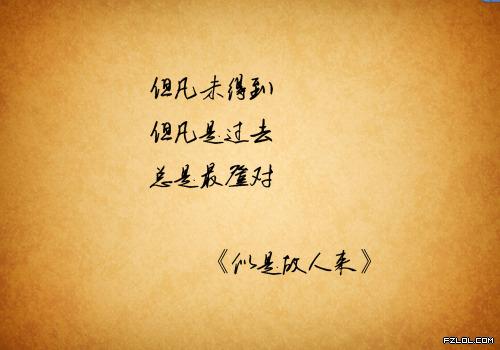 但凡未得到
但凡是过去
总是最登对
《似是故人来》
FZLOL.COM